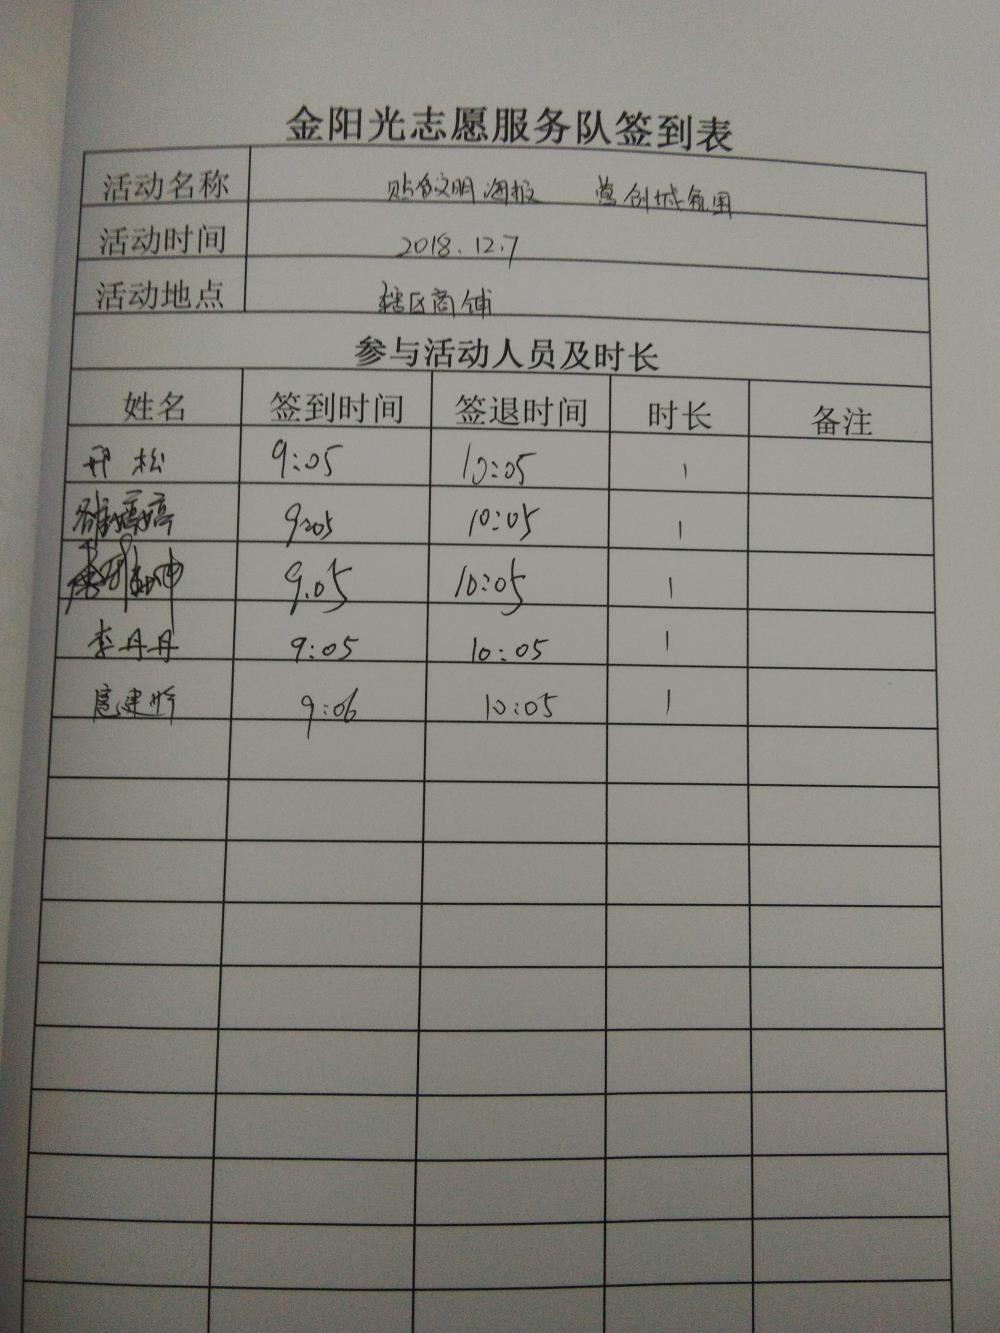 金阳光志愿服务队签到表
活动名称 贴文明海报 营创城氛围
活动时间 2018.12.7
活动地点 辖区商铺
参与活动人员及时长
姓名 签到时间 签退时间 时长 备注
邢松 9:05 10:05 1
9:05 10:05 1
9.05 10:05 1
李丹丹 9:05 10:05 1
9:06 10:05 1